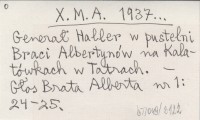 X.M.A. 1937...
Generał Haller w pustelni
Braci Albertynów na Kala-
tówkach w Tatrach. —
Głos Brata Alberta nr 1:
24-25.